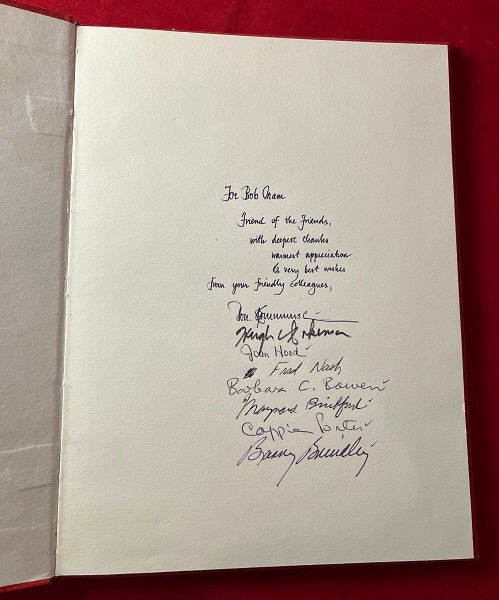 For Bob Oram
Friend of the Friends,
with deepest thanks
warmest appreciation
& very best wishes
from your friendly colleagues,
Hugh
Joan Hood
Fred Nash
Barbara C. Bowen
Maynard Brichford
Cappie
Barry Brindley